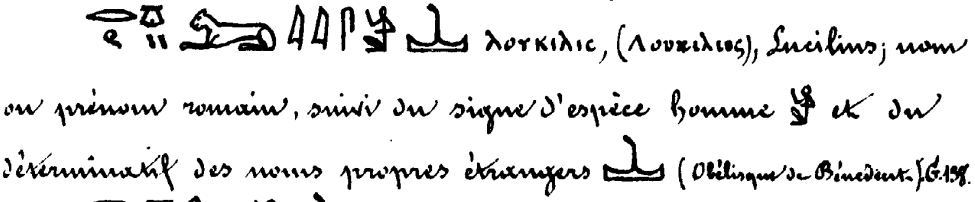 λουκιλις, (Λουκιλιος), Lucilius; nom
ou prénom romain, suivi du signe d'espèce homme et du
déterminatif des noms propres étrangers (Obélisque de Bénévent.) G. 138.